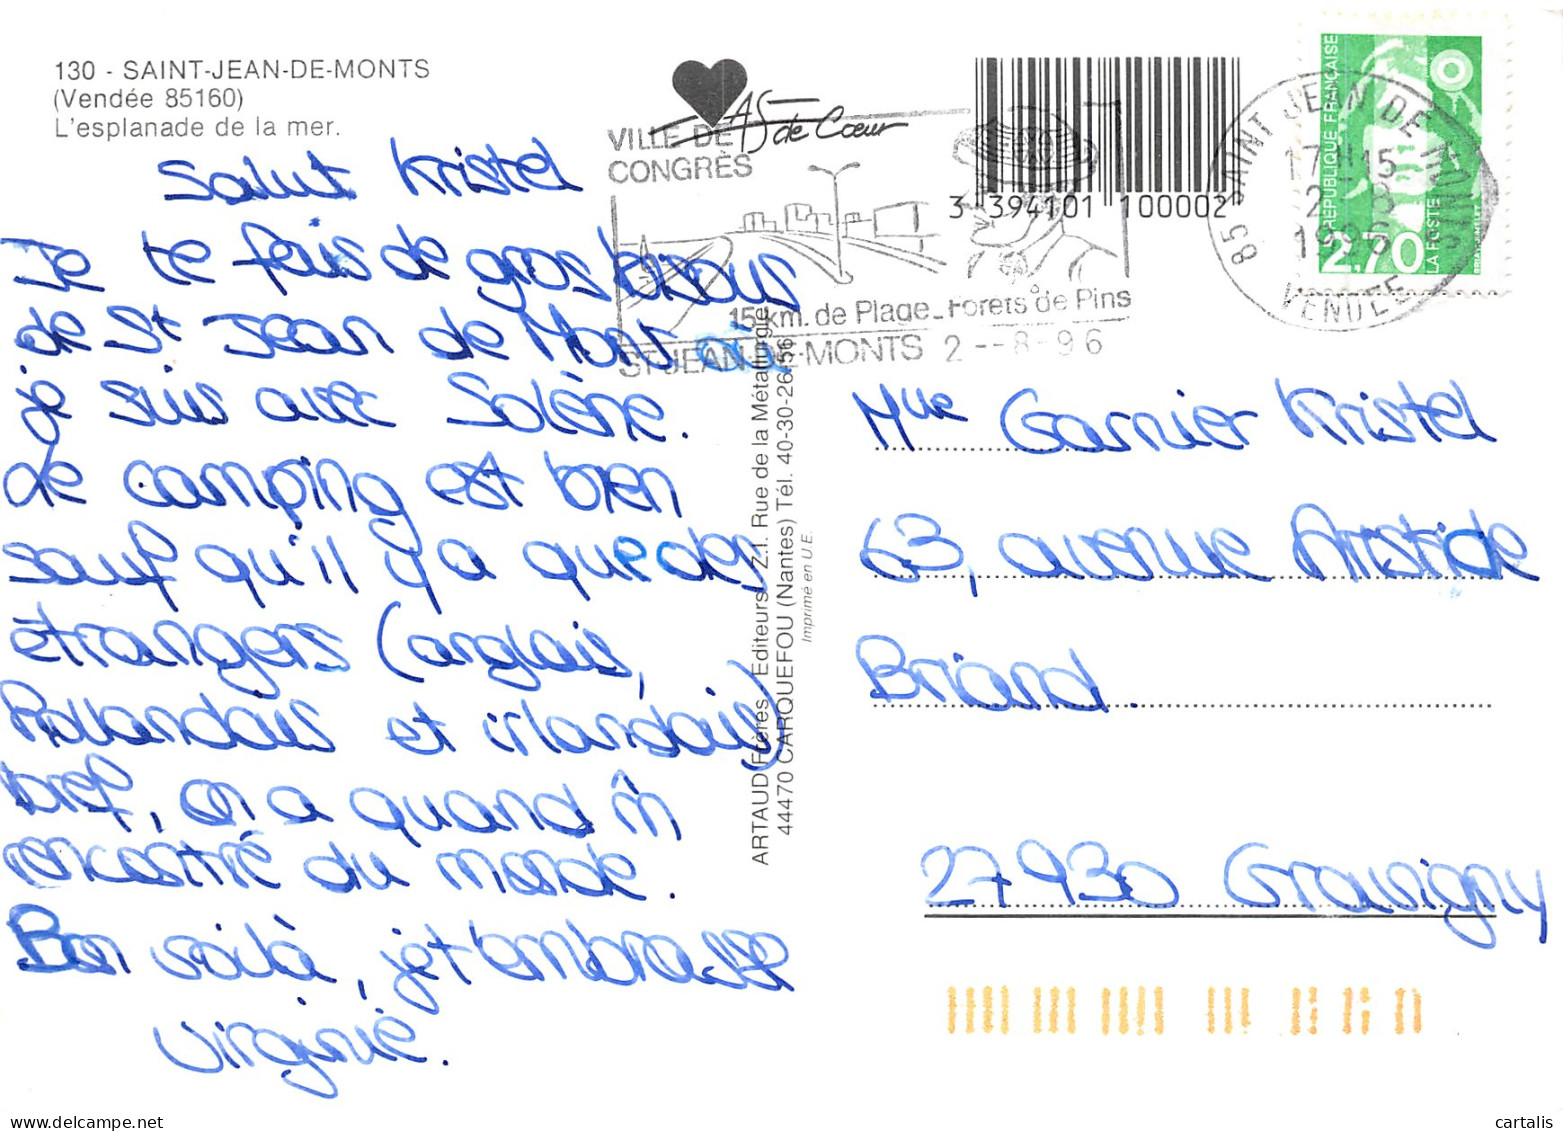 130 - SAINT-JEAN-DE-MONTS
(Vendée 85160)
L'esplanade de la mer.
Salut Kristel
Je te fais de gros bisous
de St Jean de Monts
je suis avec Solène.
Le camping est bien
sauf qu'il y a que des
étrangers (anglais,
hollandais et irlandais)
bref, on a quand m̂
rencontré du monde.
Bon voilà, je t'embrasse
Virginie.
AS de Cœur
VILLE DE
CONGRÈS
15 km. de Plage_Forets de Pins
ST JEAN-DE-MONTS 2--8-96
3 394101 100002
85 SAINT JEAN DE MONTS
17H15
2-8
1996
VENDEE
RÉPUBLIQUE FRANÇAISE
2,70
LA POSTE
ARTAUD Frères Editeurs Z.I. Rue de la Métallurgie
44470 CARQUEFOU (Nantes) Tél. 40-30-26-56
Imprimé en U.E.
Mlle Garnier Kristel
63, avenue Aristide
Briand.
27930 Gravigny
cartalis